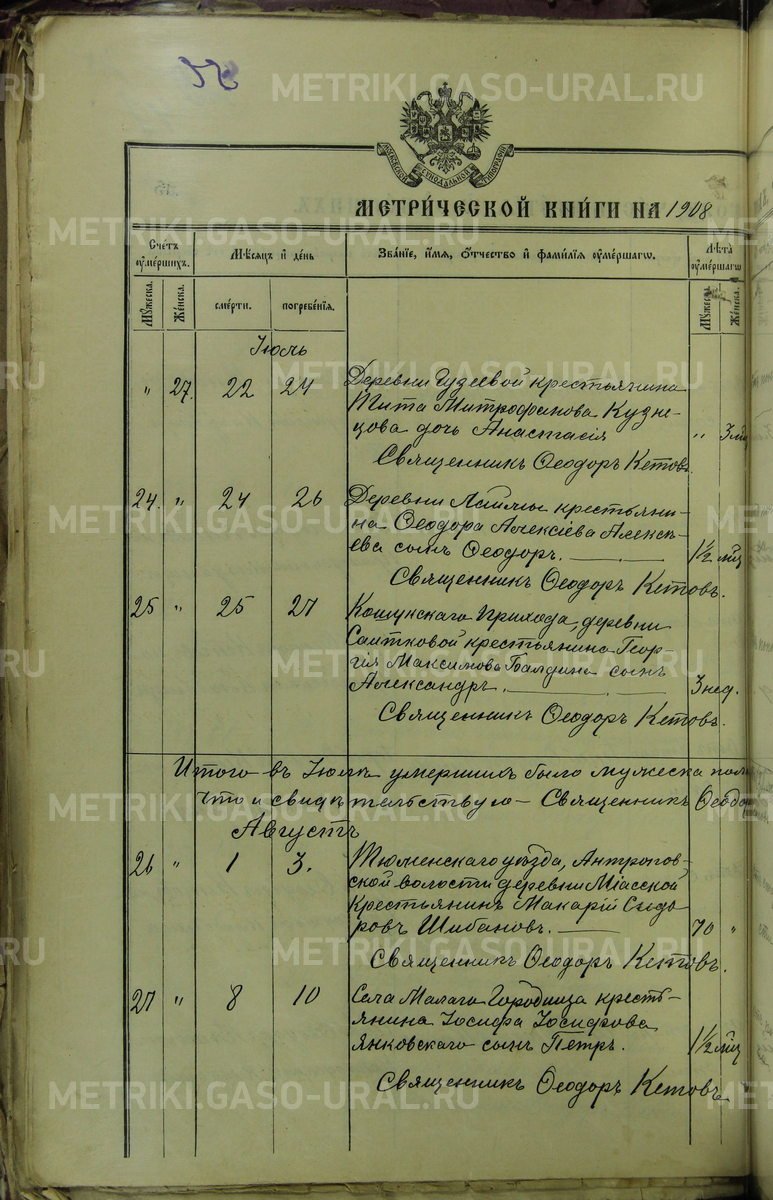 МЕТРИ́ЧЕСКОЙ КНИ́ГИ НА 1908
Сче́тъ ᲂу҆ме́ршихъ.
Мѣ́сяцъ и҆ де́нь
Зва́нїе, и҆́мя, ѻ҆́тчество и҆ фами́лїя ᲂу҆ме́ршагѡ.
Лѣ́та ᲂу҆ме́ршагѡ
Мꙋ́жеска.
Же́нска.
сме́рти.
погребе́нїѧ.
Мꙋ́жеска.
Же́нска.
Іюль
" 27. 22 24 Деревни Гузеевой крестьянина
Тита Митрофанова Кузне-
цова дочь Анастасія " 3
Священникъ Ѳеодоръ Кетовъ
24. " 24 26 Деревни крестьяни-
на Ѳеодора Алексіева Алексѣ-
ева сынъ Ѳеодоръ. 1½ мѣс
Священникъ Ѳеодоръ Кетовъ.
25 " 25 27 Кошукскаго прихода, деревни
Саитковой крестьянина Геор-
гія Максимова Балдина сынъ
Александръ. 3 нед.
Священникъ Ѳеодоръ Кетовъ.
Итого въ Іюлѣ умершихъ было мужеска пола
Что и свидѣтельствую – Священникъ Ѳеодоръ
Августъ
26 " 1 3. Тюменскаго уѣзда, Антропов-
ской волости деревни Міасской
крестьянинъ Макарій Сидо
ровъ Шибановъ. 70 "
Священникъ Ѳеодоръ Кетовъ.
27 " 8 10 Села Малаго Городища кресть-
янина Іосифа Іосифова
Янковскаго сынъ Петръ. 1½ мѣс
Священникъ Ѳеодоръ Кетовъ
METRIKI.GASO-URAL.RU